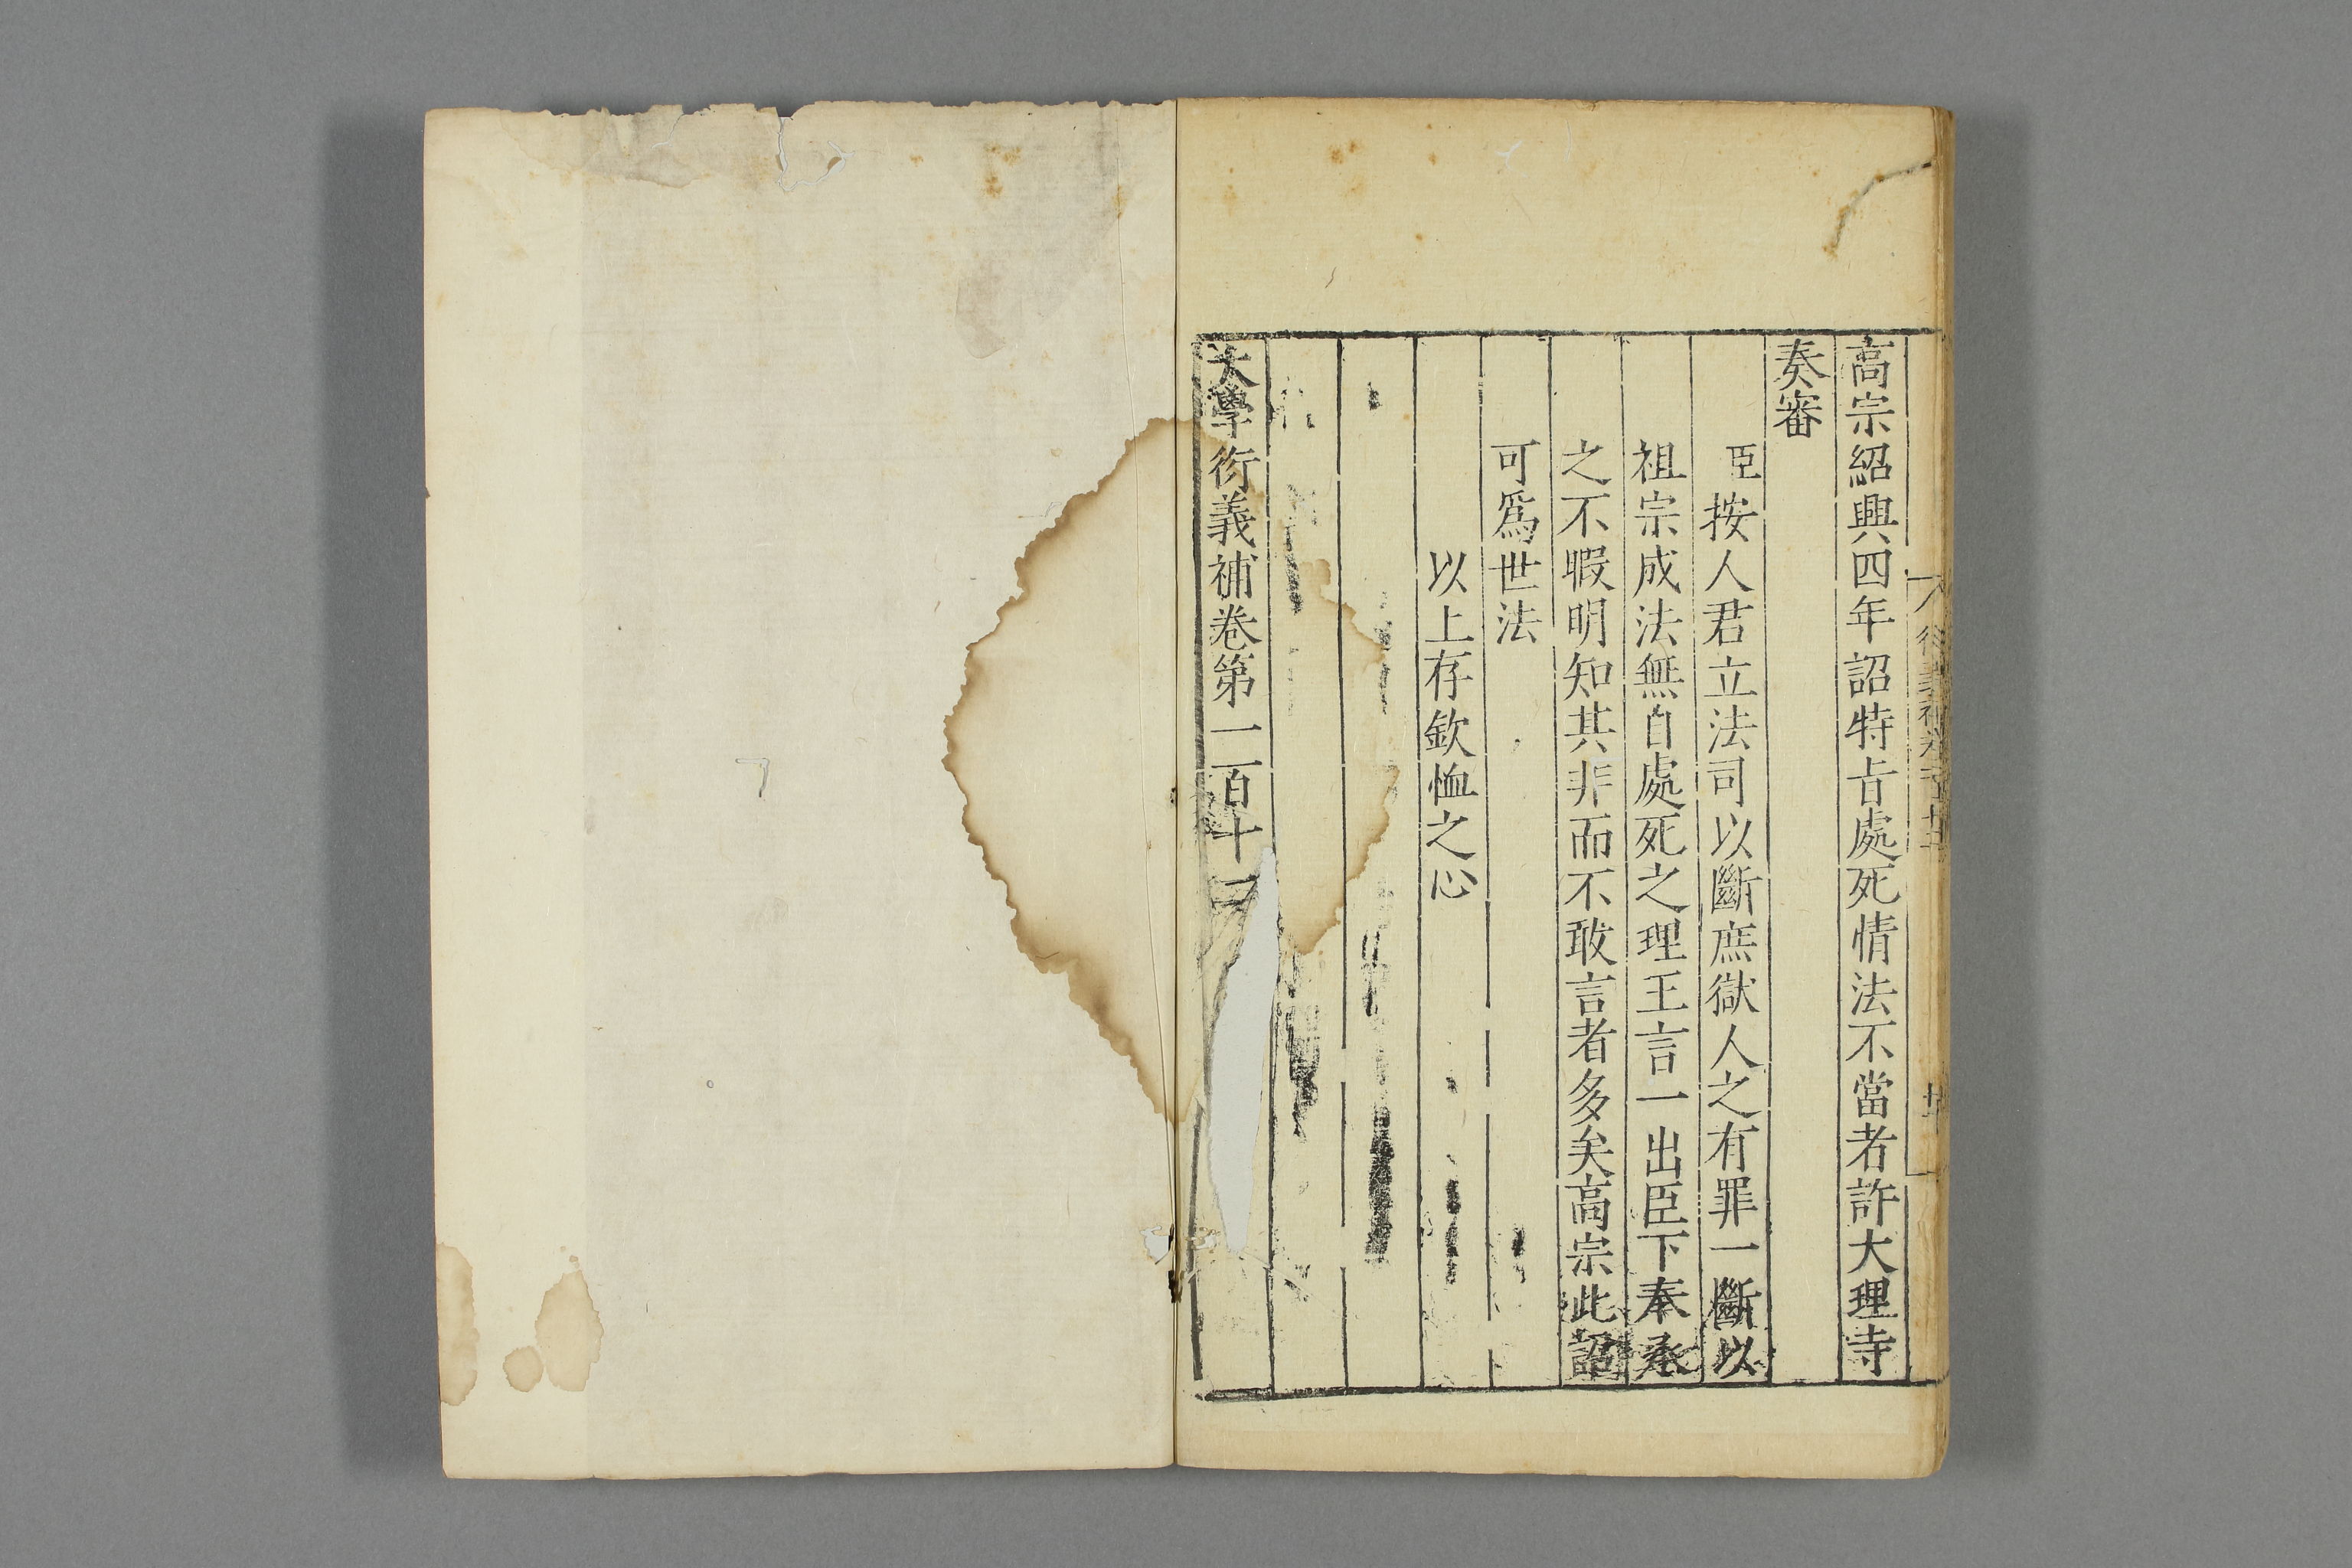 高宗紹興四年詔特㫖處死情法不當者許大理寺
奏審
臣按人君立法司以斷庶獄人之有罪一斷以
祖宗成法無自處死之理王言一出臣下奉承
之不暇明知其非而不敢言者多矣高宗此詔
可爲世法
以上存欽恤之心
大學衍義補卷第一百十